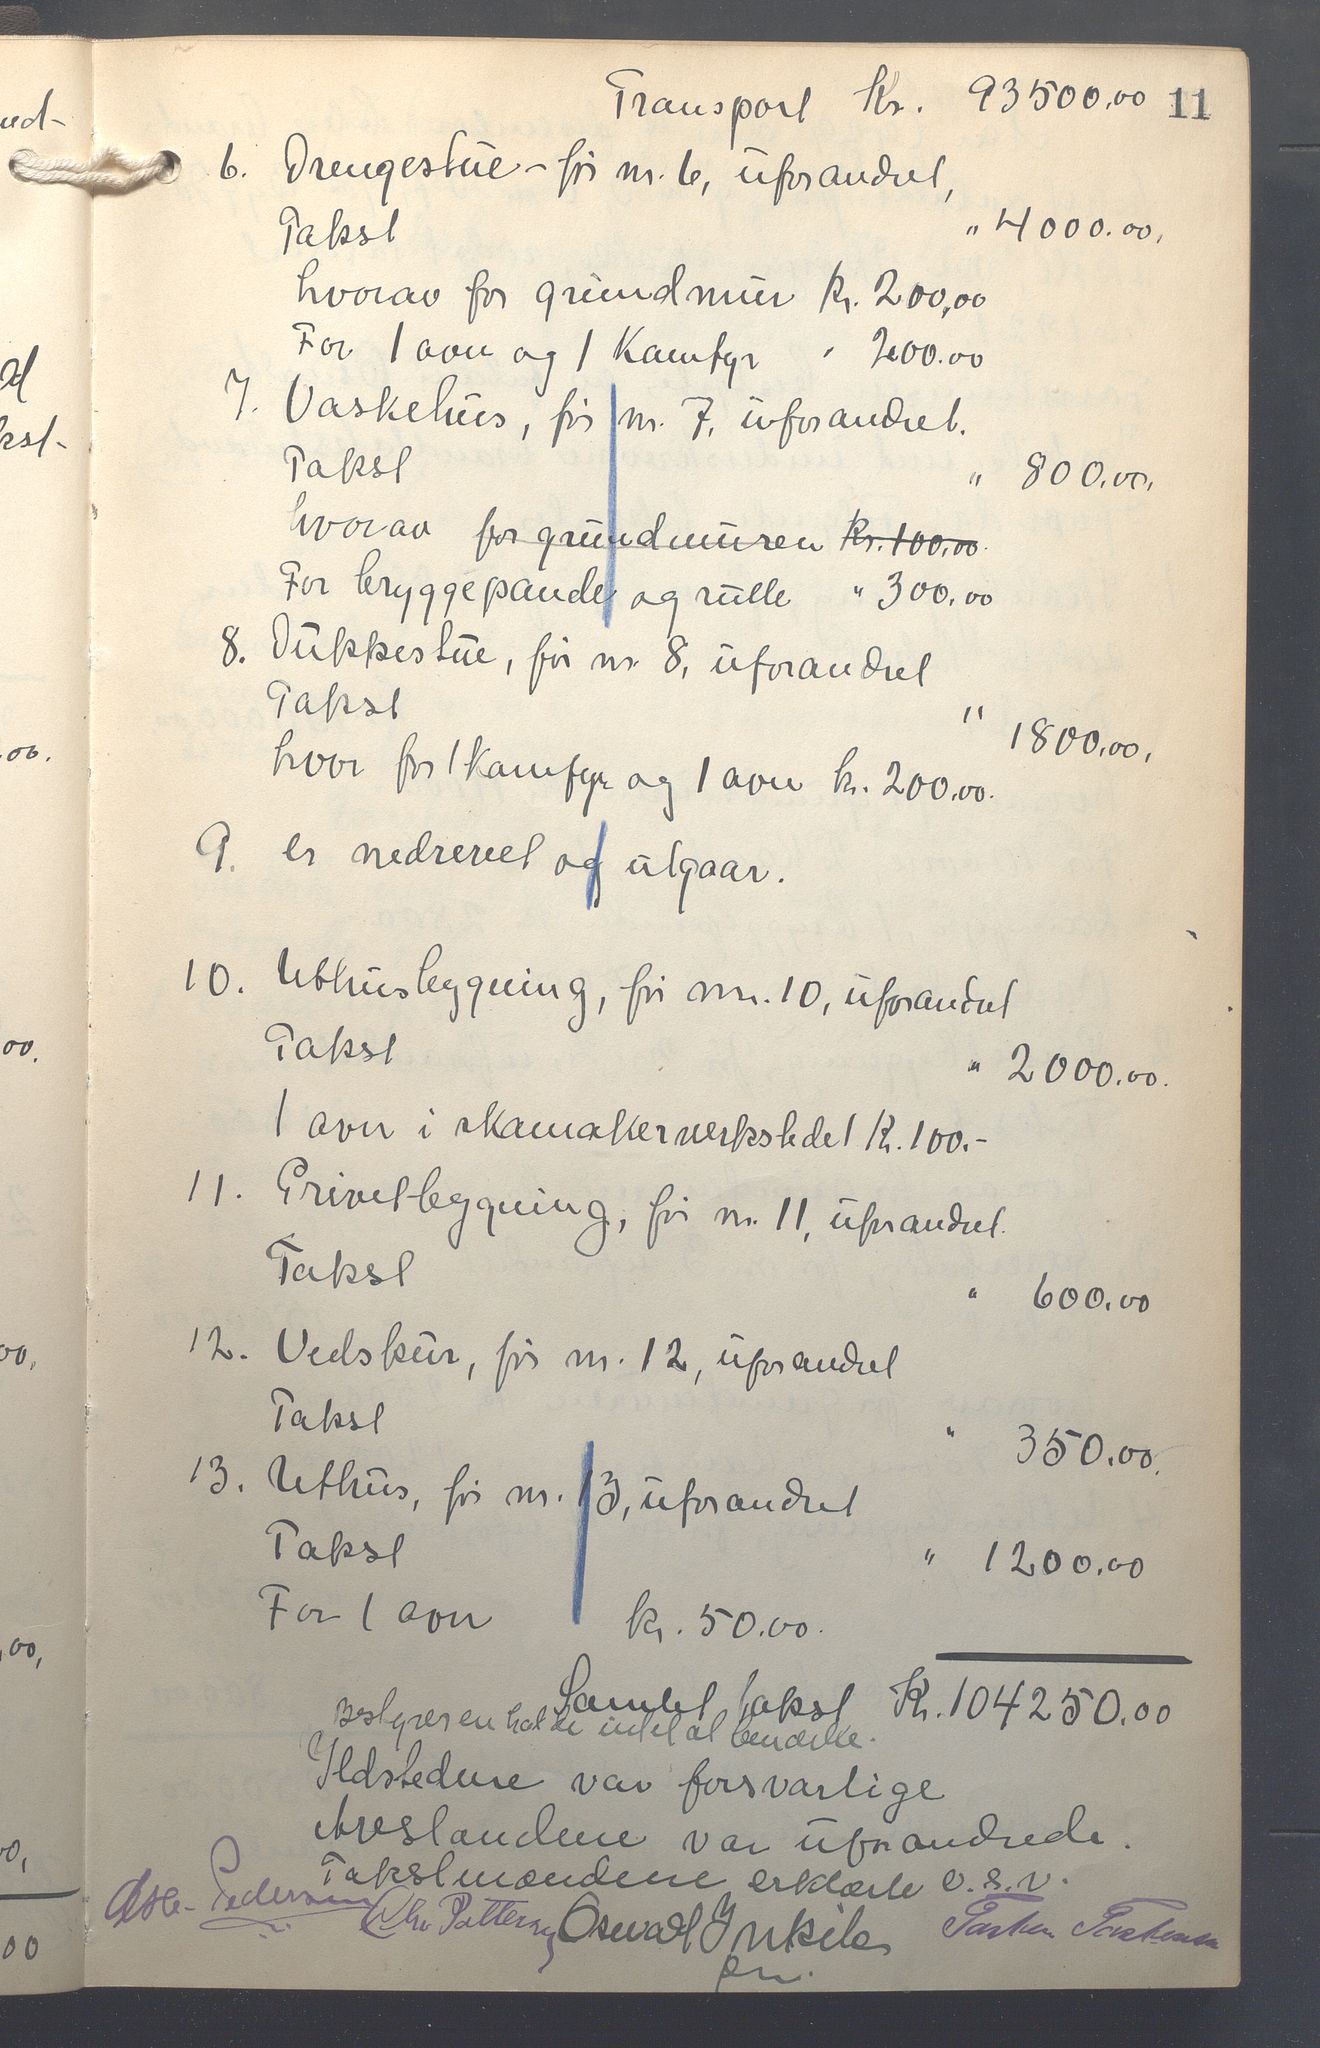 11
Transport Kr. 93500.00
6. Drengestue - før nr. 6, uforandret,
Takst " 4000.00.
hvorav for grundmur kr. 200,00
For 1 ovn og 1 Komfyr " 200.00
7. Vaskehus, før nr. 7, uforandret.
Takst " 800.00.
hvorav for grundmuren kr. 100.00.
For bryggepande og rulle " 300.00
8. Dukkestue, før nr. 8, uforandret
Takst " 1800.00.
hvor for 1 komfyr og 1 ovn kr. 200.00.
9. er nedrevet og utgaar.
10. Uthusbygning, før nr. 10, uforandret
Takst " 2000.00.
1 ovn i skomakerverkstedet kr. 100.-
11. Privetbygning, før nr. 11, uforandret.
Takst " 600.00
12. Vedskur, før nr. 12, uforandret
Takst " 350.00.
13. Uthus, før nr. 13, uforandret
Takst " 1200.00
For 1 ovn kr. 50.00.
Samlet takst Kr. 104250.00
Bestyreren hadde intet at bemerke.
Ildstedene var forsvarlige
Avstandene var uforandrede.
Takstmændene erklærte o.s.v.
Pedersen Chr Pettersen Osvald Torkel Torkelsen
ed-
kst-
.00.
00.
00.
.00,
0,
00